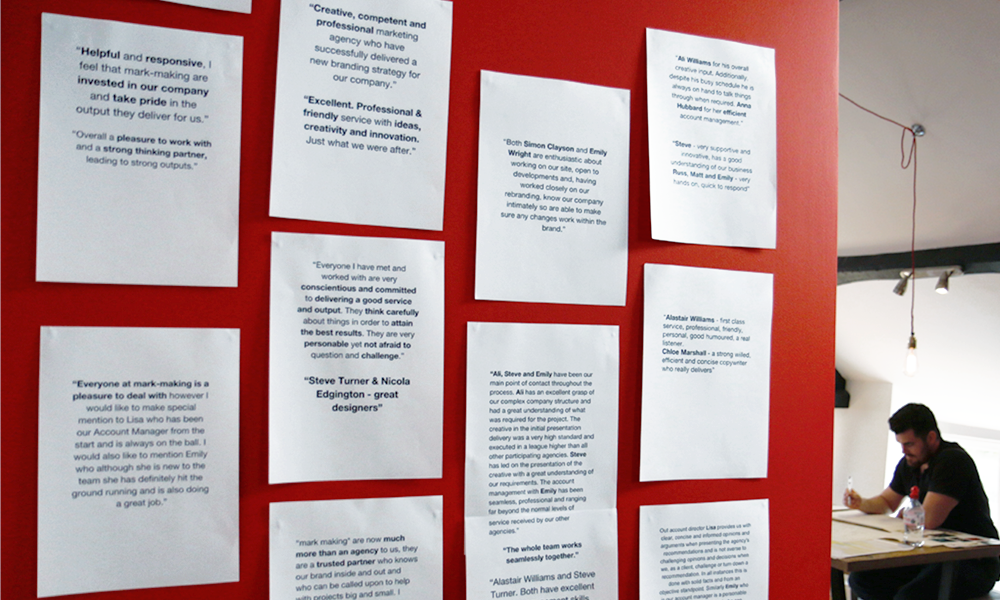 "Helpful and responsive, I
feel that mark-making are
invested in our company
and take pride in the
output they deliver for us."
"Overall a pleasure to work with
and a strong thinking partner,
leading to strong outputs."
"Everyone at mark-making is a
pleasure to deal with however I
would like to make special
mention to Lisa who has been
our Account Manager from the
start and is always on the ball. I
would also like to mention Emily
who although she is new to the
team she has definitely hit the
ground running and is also doing
a great job."
"Creative, competent and
professional marketing
agency who have
successfully delivered a
new branding strategy for
our company."
"Excellent. Professional &
friendly service with ideas,
creativity and innovation.
Just what we were after."
"Everyone I have met and
worked with are very
conscientious and committed
to delivering a good service
and output. They think carefully
about things in order to attain
the best results. They are very
personable yet not afraid to
question and challenge."
"Steve Turner & Nicola
Edgington - great
designers"
"mark making" are now much
more than an agency to us, they
are a trusted partner who knows
our brand inside and out and
who can be called upon to help
with projects big and small. I
"Both Simon Clayson and Emily
Wright are enthusiastic about
working on our site, open to
developments and, having
worked closely on our
rebranding, know our company
intimately so are able to make
sure any changes work within the
brand."
"Ali, Steve and Emily have been our
main point of contact throughout the
process. Ali has an excellent grasp of
our complex company structure and
had a great understanding of what
was required for the project. The
creative in the initial presentation
delivery was a very high standard and
executed in a league higher than all
other participating agencies. Steve
has led on the presentation of the
creative with a great understanding of
our requirements. The account
management with Emily has been
seamless, professional and ranging
far beyond the normal levels of
service received by our other
agencies."
"The whole team works
seamlessly together."
"Alastair Williams and Steve
Turner. Both have excellent
skills
"Ali Williams for his overall
creative input. Additionally,
despite his busy schedule he is
always on hand to talk things
through when required. Anna
Hubbard for her efficient
account management."
"Steve - very supportive and
innovative, has a good
understanding of our business
Russ, Matt and Emily - very
hands on, quick to respond"
"Alastair Williams - first class
service, professional, friendly,
personal, good humoured, a real
listener.
Chloe Marshall - a strong willed,
efficient and concise copywriter
who really delivers"
Our account director Lisa provides us with
clear, concise and informed opinions and
arguments when presenting the agency's
recommendations and is not averse to
challenging opinions and decisions when
we, as a client, challenge or turn down a
recommendation. In all instances this is
done with solid facts and from an
objective standpoint. Similarly Emily who
our account manager is a personable